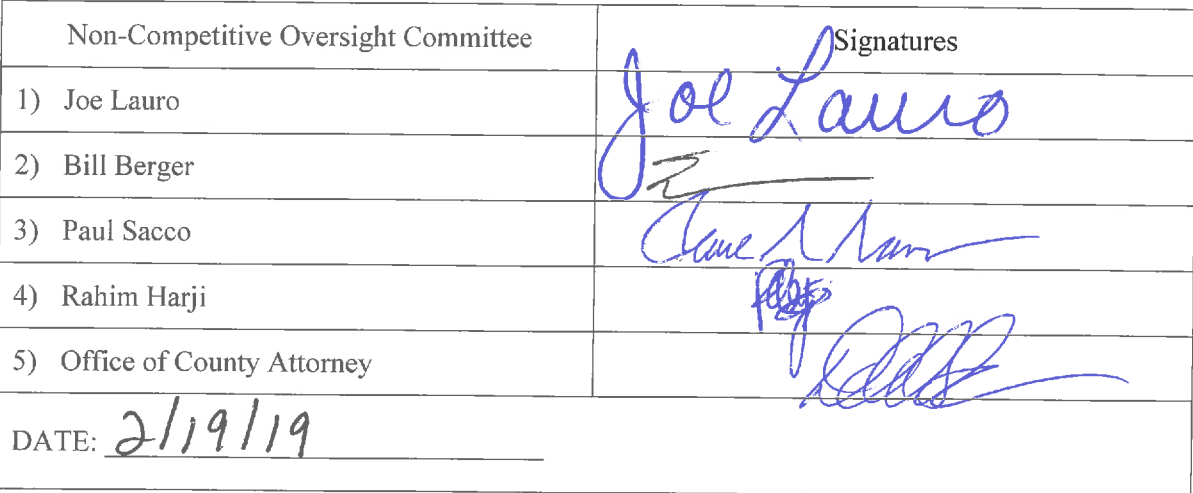 Non-Competitive Oversight Committee Signatures
1) Joe Lauro Joe Lauro
2) Bill Berger
3) Paul Sacco
4) Rahim Harji
5) Office of County Attorney
DATE: 2/19/19